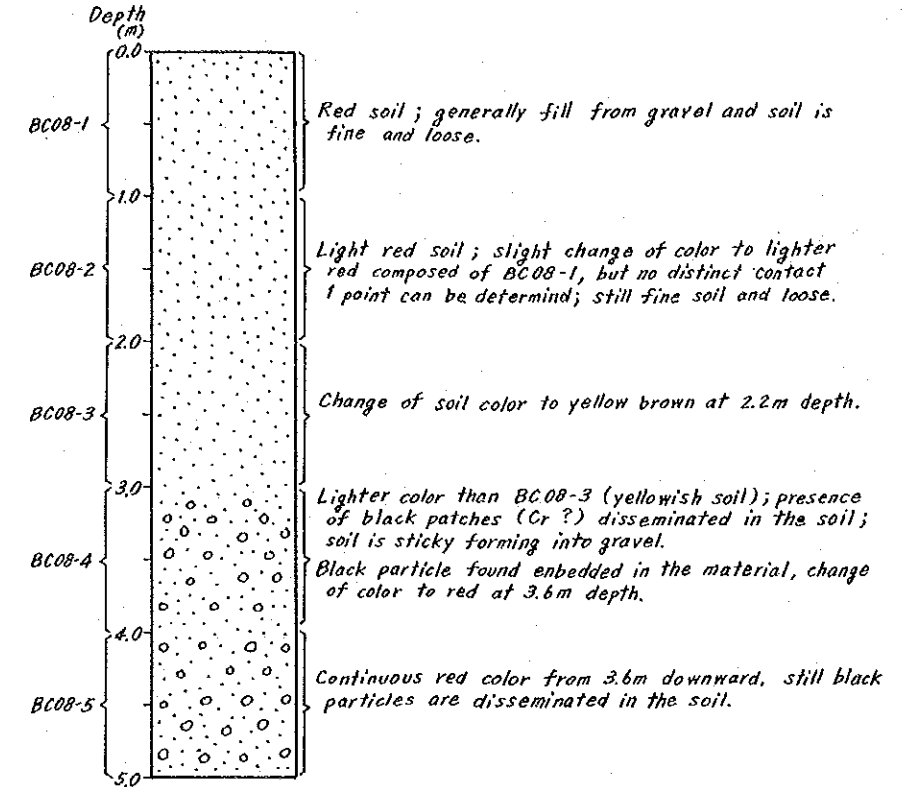 Depth
(m)
0.0
BC08-1
Red soil ; generally fill from gravel and soil is
fine and loose.
1.0
BC08-2
Light red soil ; slight change of color to lighter
red composed of BC08-1, but no distinct contact
1 point can be determind; still fine soil and loose.
2.0
BC08-3
Change of soil color to yellow brown at 2.2m depth.
3.0
BC08-4
Lighter color than BC08-3 (yellowish soil); presence
of black patches (Cr ?) disseminated in the soil;
soil is sticky forming into gravel.
Black particle found enbedded in the material, change
of color to red at 3.6m depth.
4.0
BC08-5
Continuous red color from 3.6m downward, still black
particles are disseminated in the soil.
5.0